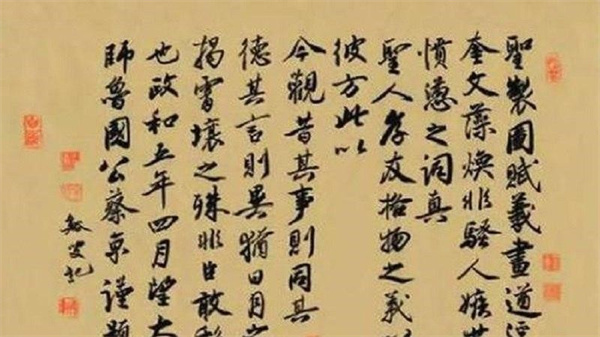 聖製圖賦羲畫道深
奎文藻煥非騷人嫉世
憤懣之詞真
聖人孝友格物之義以
彼方此以
今觀昔其事則同其
德其言則異猶日月之
揭霄壤之殊非臣敢私
也政和五年四月望太
師魯國公蔡京謹題